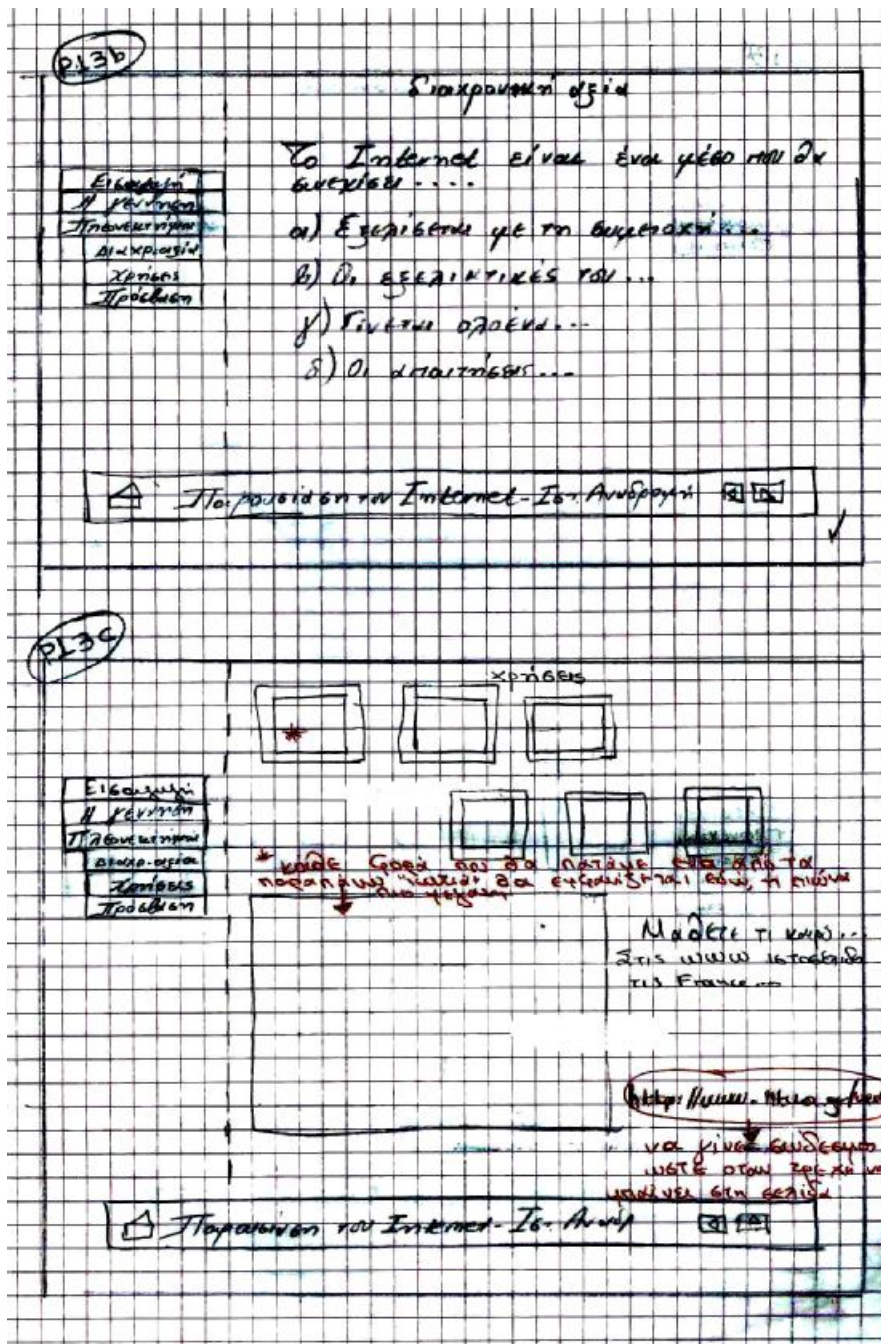 P13b
διαχρονική αξία
Το Internet είναι ένα μέσο που θα
συνεχίσει ....
Εισαγωγή
Η γέννηση
Πλεονεκτήματα
Διαχρ. αξία
Χρήσεις
Πρόσβαση
α) Εξελίσεται με τη συμετοχή ...
β) Οι εξελικτικές του ...
γ) Γίνεται ολοένα ...
δ) Οι απαιτήσεις ...
Παρουσίαση του Internet - Ιστ. Αναδρομή
P13c
χρήσεις
*
Εισαγωγή
Η γέννηση
Πλεονεκτήματα
Διαχρ. αξία
Χρήσεις
Πρόσβαση
* κάθε φορά που θα πατάμε ένα από τα
παραπάνω "κουτιά" θα εμφανίζεται εδώ, η εικόνα
πιο μεγάλη
Μάθετε τι καιρό ...
Στις www ιστοσελίδες
τις France ...
http://www.
να γίνει σύνδεσμος
ώστε όταν τρέχει να
μπαίνει στη σελίδα
Παρουσίαση του Internet - Ιστ. Αναδρ